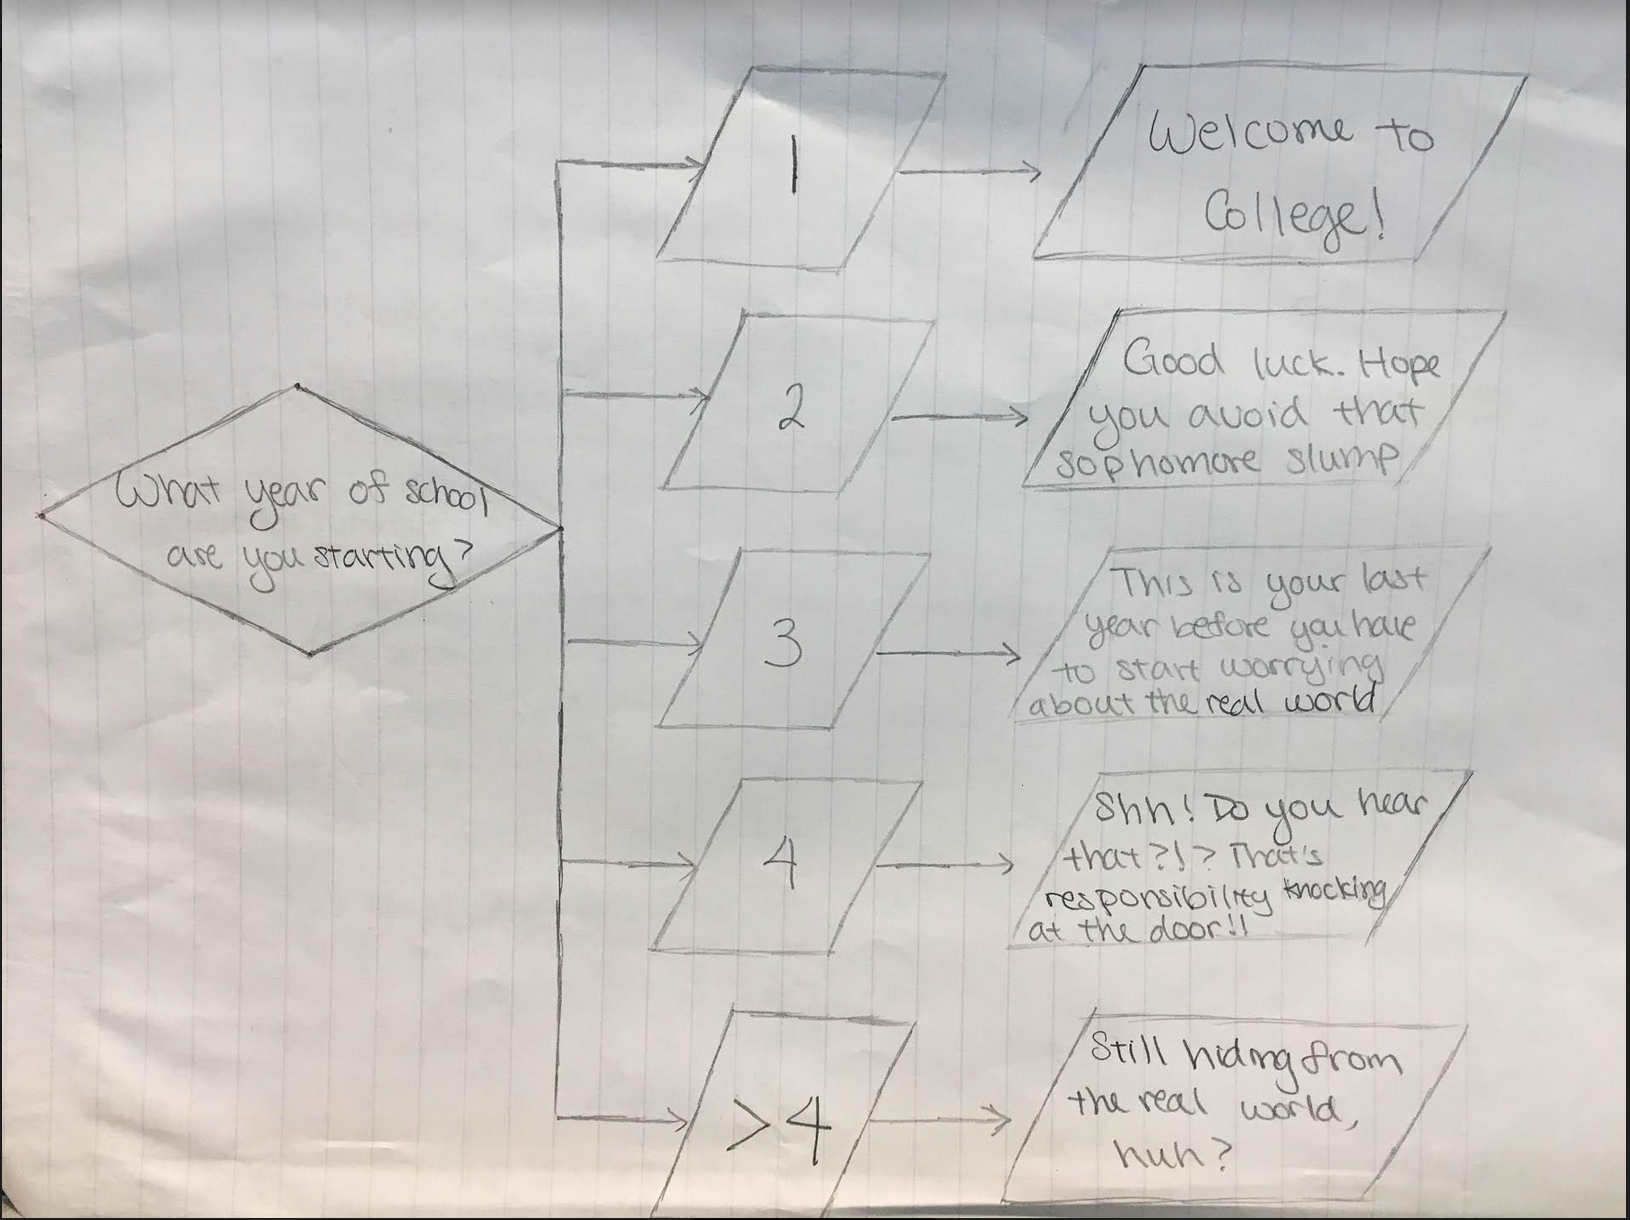 What year of school
are you starting?
1
Welcome to
College!
2
Good luck. Hope
you avoid that
sophomore slump
3
This is your last
year before you have
to start worrying
about the real world
4
Shh! Do you hear
that?!? That's
responsibility knocking
at the door!!
>4
Still hiding from
the real world,
huh?